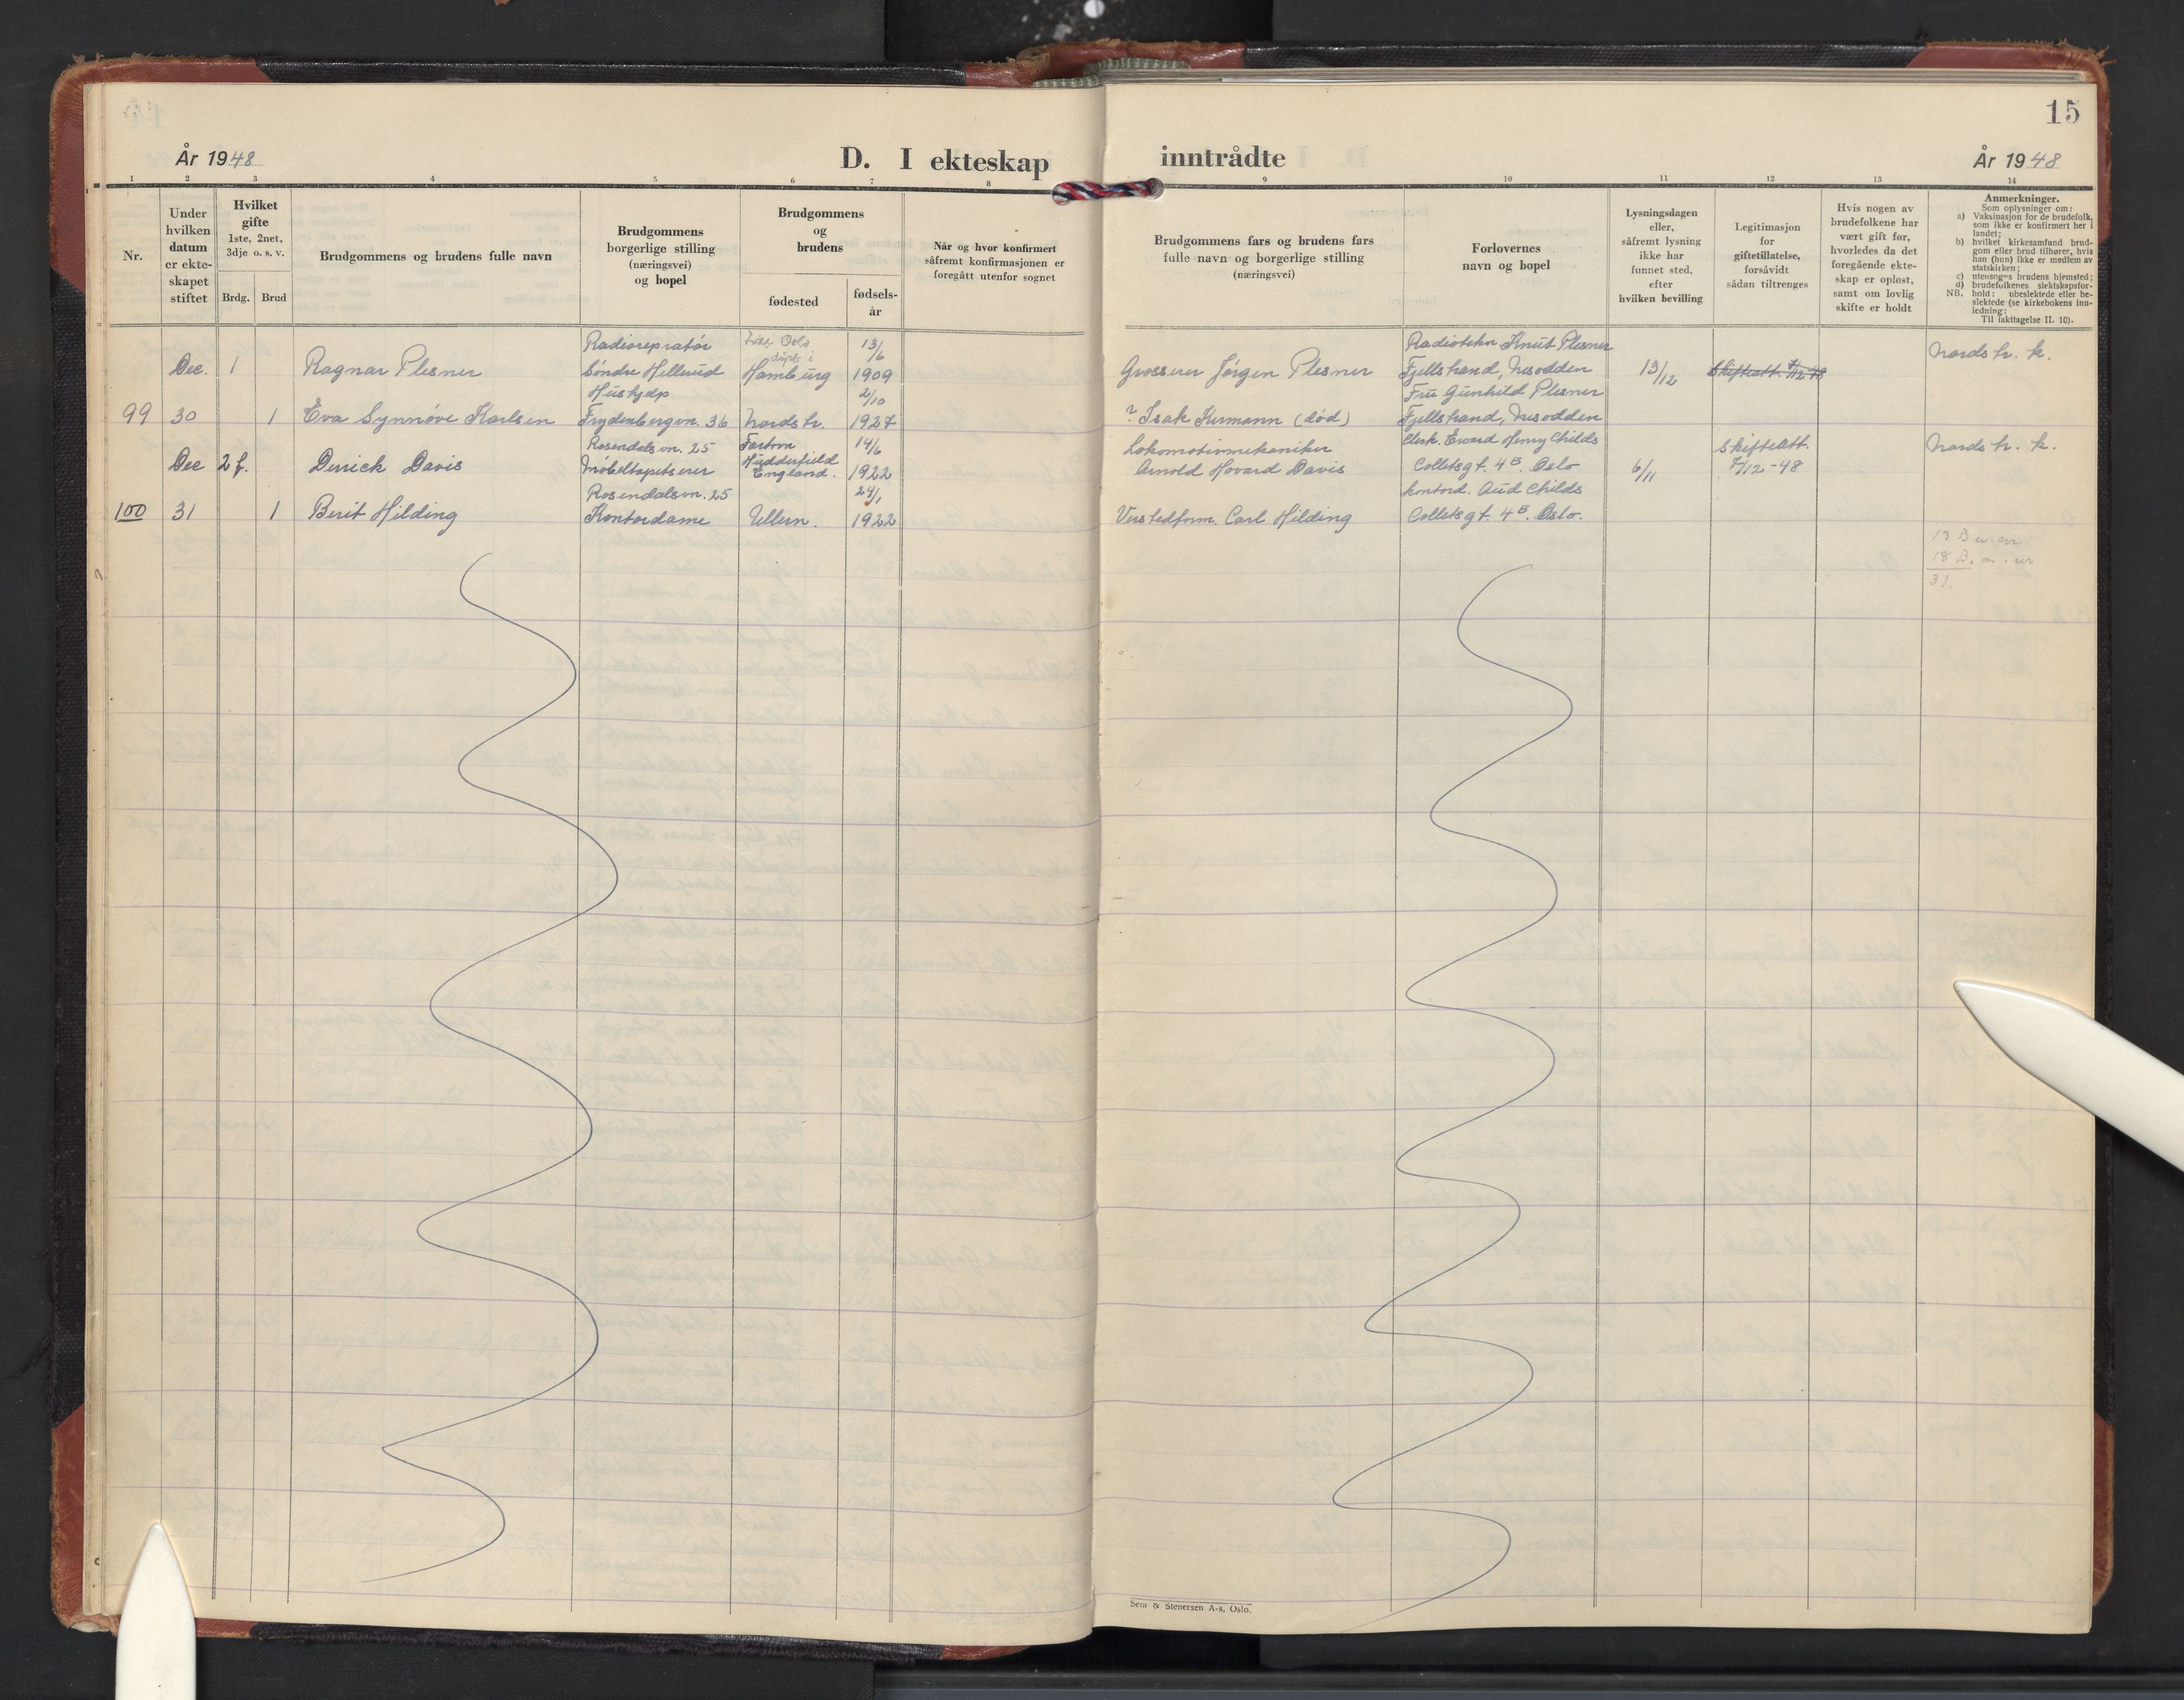 15
År 1948
D. I ekteskap inntrådte
År 1948
1 2 3 4 5 6 7 8 9 10 11 12 13 14
Nr.
Under hvilken datum er ekte-skapet stiftet
Hvilket gifte 1ste, 2net, 3dje o. s. v.
Brdg. Brud
Brudgommens og brudens fulle navn
Brudgommens borgerlige stilling (næringsvei) og bopel
Brudgommens og brudens
fødested
fødsels-år
Når og hvor konfirmert såfremt konfirmasjonen er foregått utenfor sognet
Brudgommens fars og brudens fars fulle navn og borgerlige stilling (næringsvei)
Forlovernes navn og bopel
Lysningsdagen eller, såfremt lysning ikke har funnet sted, efter hvilken bevilling
Legitimasjon for giftetillatelse, forsåvidt sådan tiltrenges
Hvis nogen av brudefolkene har vært gift før, hvorledes da det foregående ekte-skap er opløst, samt om lovlig skifte er holdt
Anmerkninger.
Som oplysninger om:
a) Vaksinasjon for de brudefolk, som ikke er konfirmert her i landet;
b) hvilket kirkesamfund brud-gom eller brud tilhører, hvis han (hun) ikke er medlem av statskirken;
c) utensogns brudens hjemsted;
d) brudefolkenes slektskapsfor-hold: ubeslektede eller be-slektede (se kirkebokens inn-ledning:
NB. Til iakttagelse II. 10).
Radioreparatør Oslo 13/6 Radiotekn Knut Plesner
Dec. 1 Ragnar Plesner Søndre Hellerud døpt i Hamburg 1909 Grosserer Jørgen Plesner Fjellstrand, Nesodden 13/12 Skifteatt. 7/12-48 Nordstr. k.
Hushjelp 2/10 Fru Gunhild Plesner
99 30 1 Eva Synnøve Karlsen Frydenbergvn. 36 Nordstr. 1927 ? Isak Kermann (død) Fjellstrand, Nesodden
Rosendalsvn. 25 14/6 Lokomotivmekaniker Clerk. Eward Henry Childs Skifteatt.
Dec 2 f. Derrick Davis Møbeltapetserer Hudderfield England. 1922 Arnold Hovard Davis Colletsgt. 4B. Oslo 6/11 7/12-48 Nordstr. k.
Rosendalsvn. 25 24/1 Kontord. Aud Childs
100 31 1 Berit Hilding Kontordame Ullern. 1922 Verstedform. Carl Hilding Colletsgt. 4B. Oslo.
13 B
18 B.
31.
Sem & Stenersen A-s, Oslo.